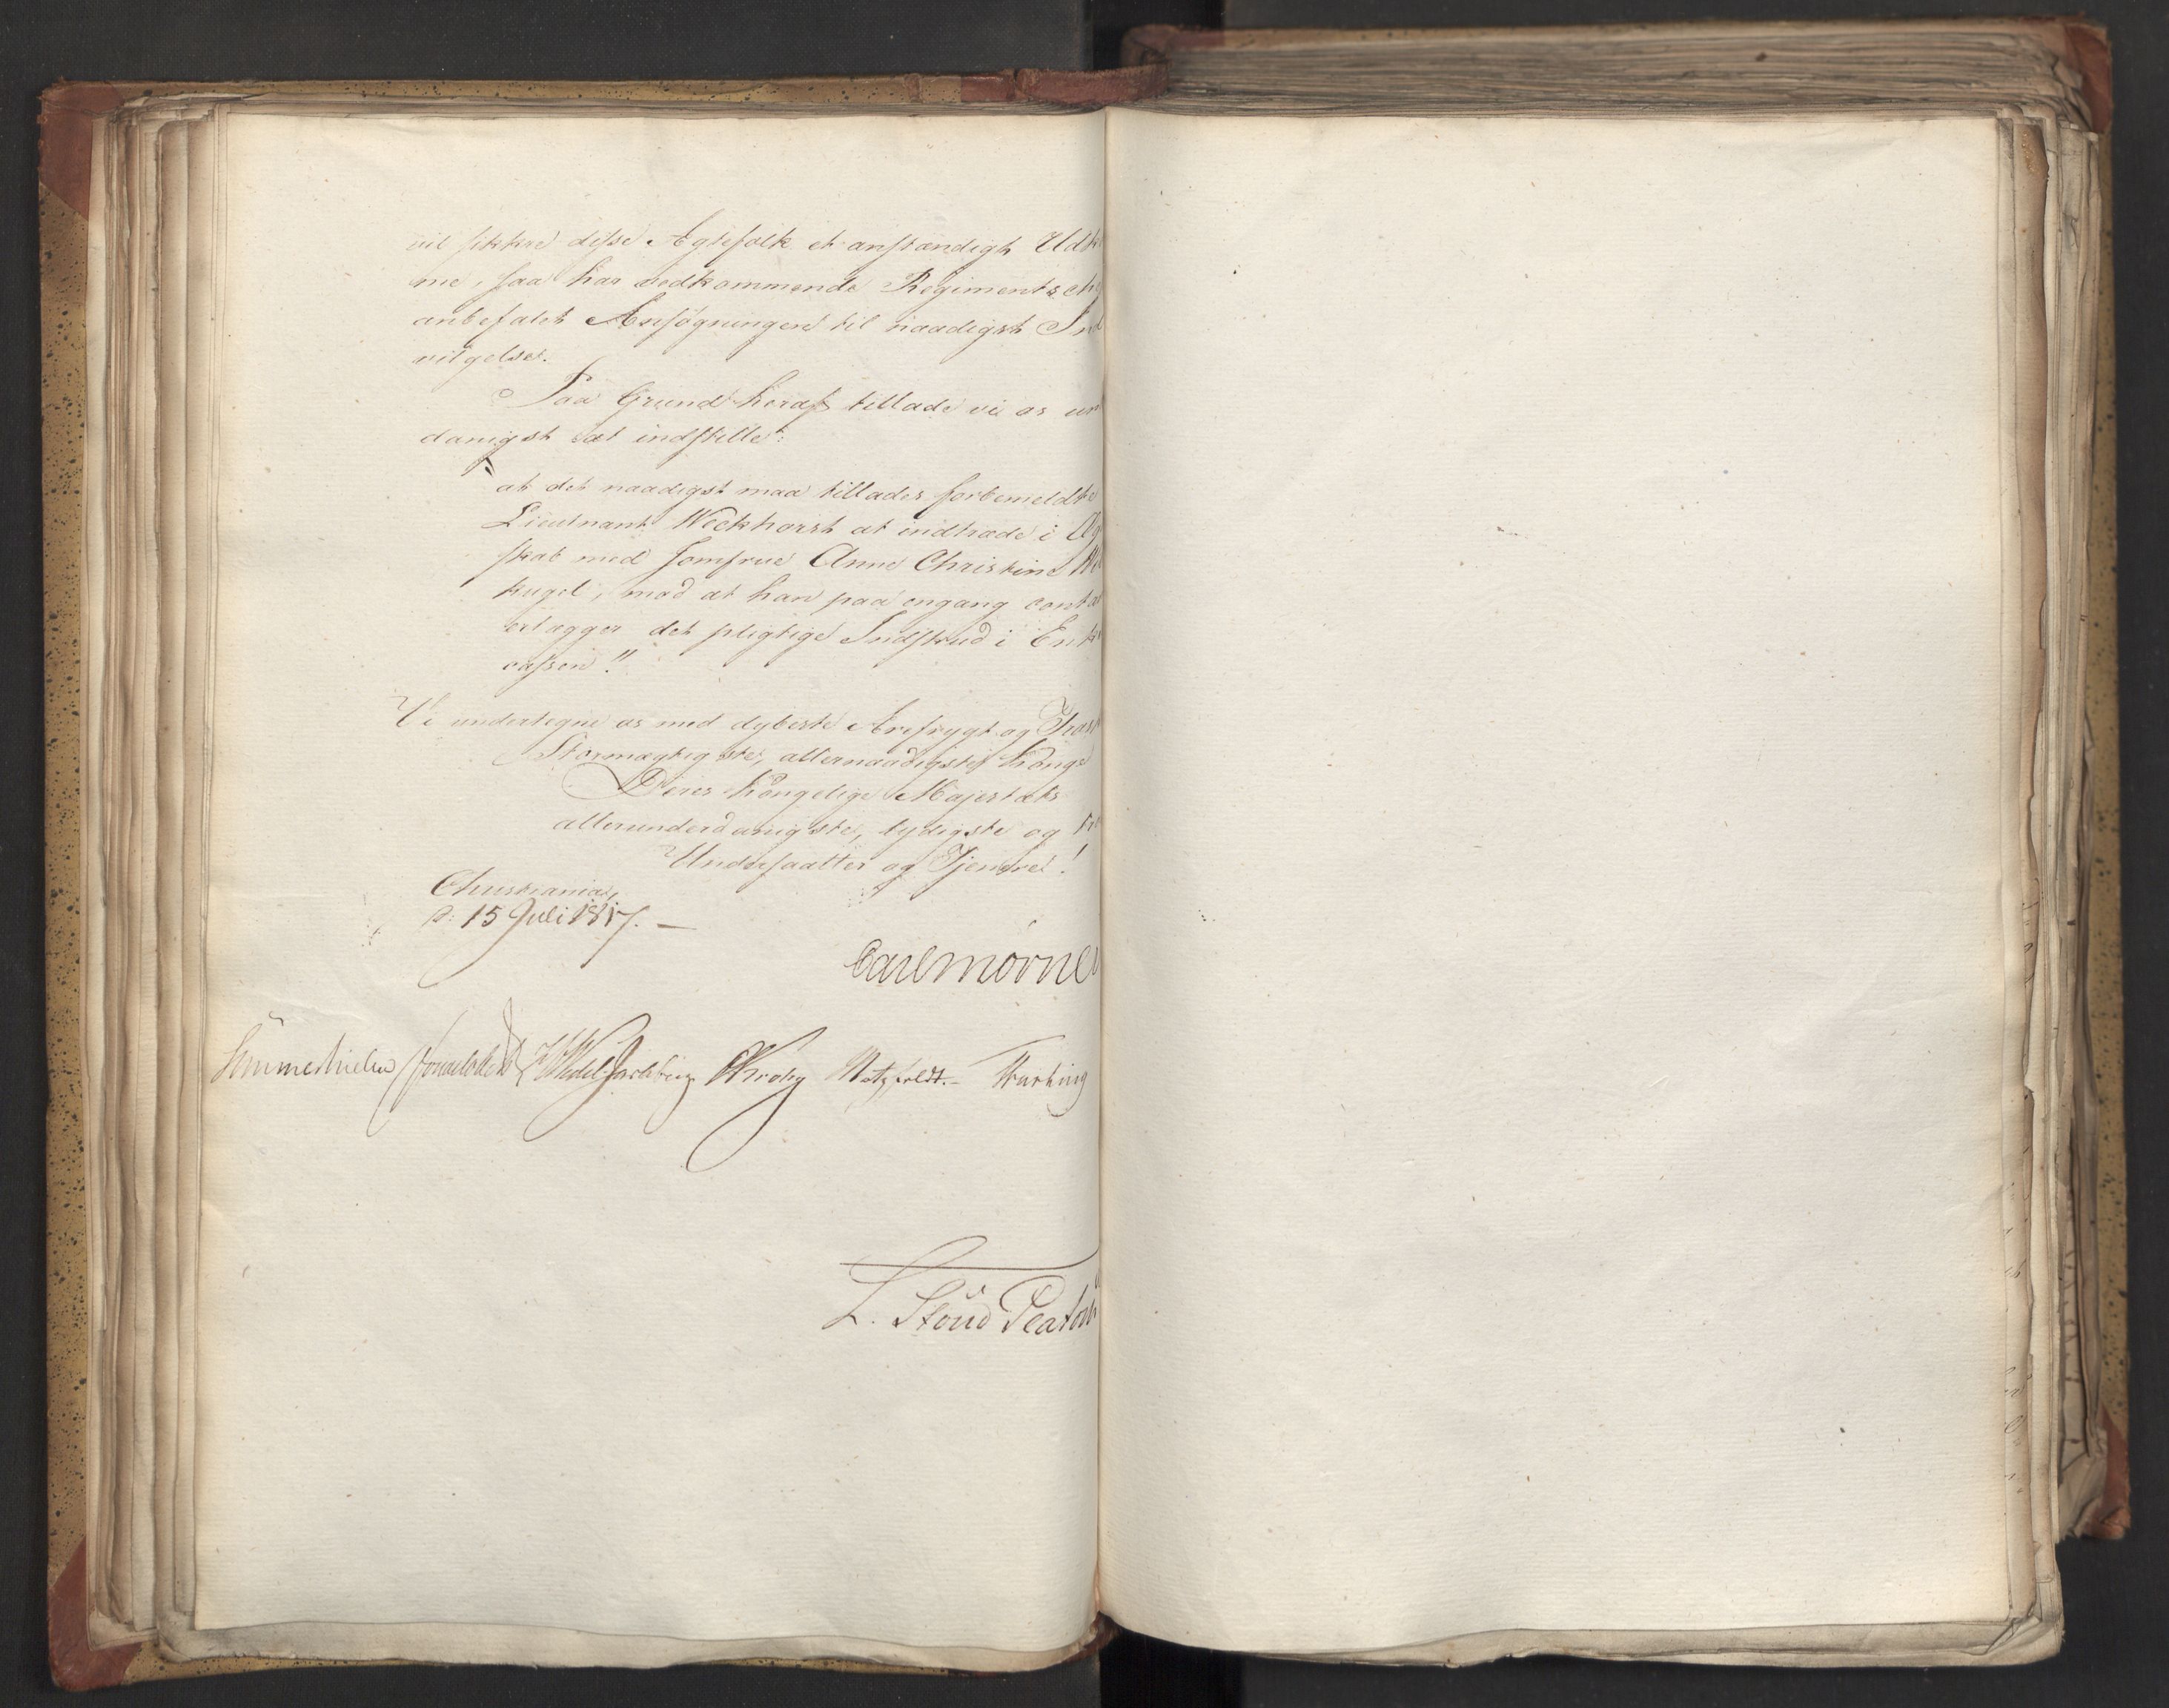 vil sikkre disse Ægtefolk et anstændigt Udk
me, saa har vedkommende Regimentsch
anbefalet Ansøgningen til naadigst Ind
vilgelse.
Paa Grund heraf tillade vi os un
danigst at indstille:
"at det naadigst maa tillades forbemeldte
Lieutnant Weckhorst at indtræde i Æg
skab med Jomfrue Anne Christine
kugel, mod at han paa engang contan
erlægger det pligtige Indskud i Enke
cassen"
Vi undertegne os med dybeste Ærefrygt og Trosk
Stormægtigste, allernaadigste Konge
Deres Kongelige Majestæts
allerunderdanigste, lydigste og tro
Undersaatter og Tjenere!
Christiania,
d: 15 Juli 1817. —
Carl Mörner
Sommerhielm HWedel Jarlsberg Krohg Motzfeldt. —
L. Stoud Platou